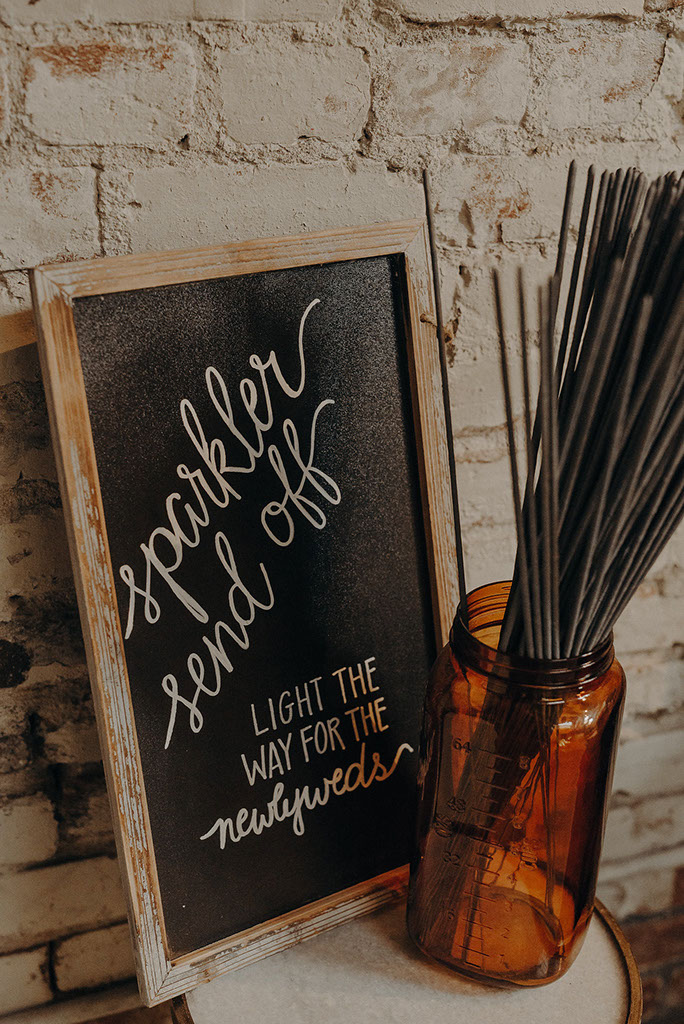 sparkler
send off
LIGHT THE
WAY FOR THE
newlyweds
64
48
32